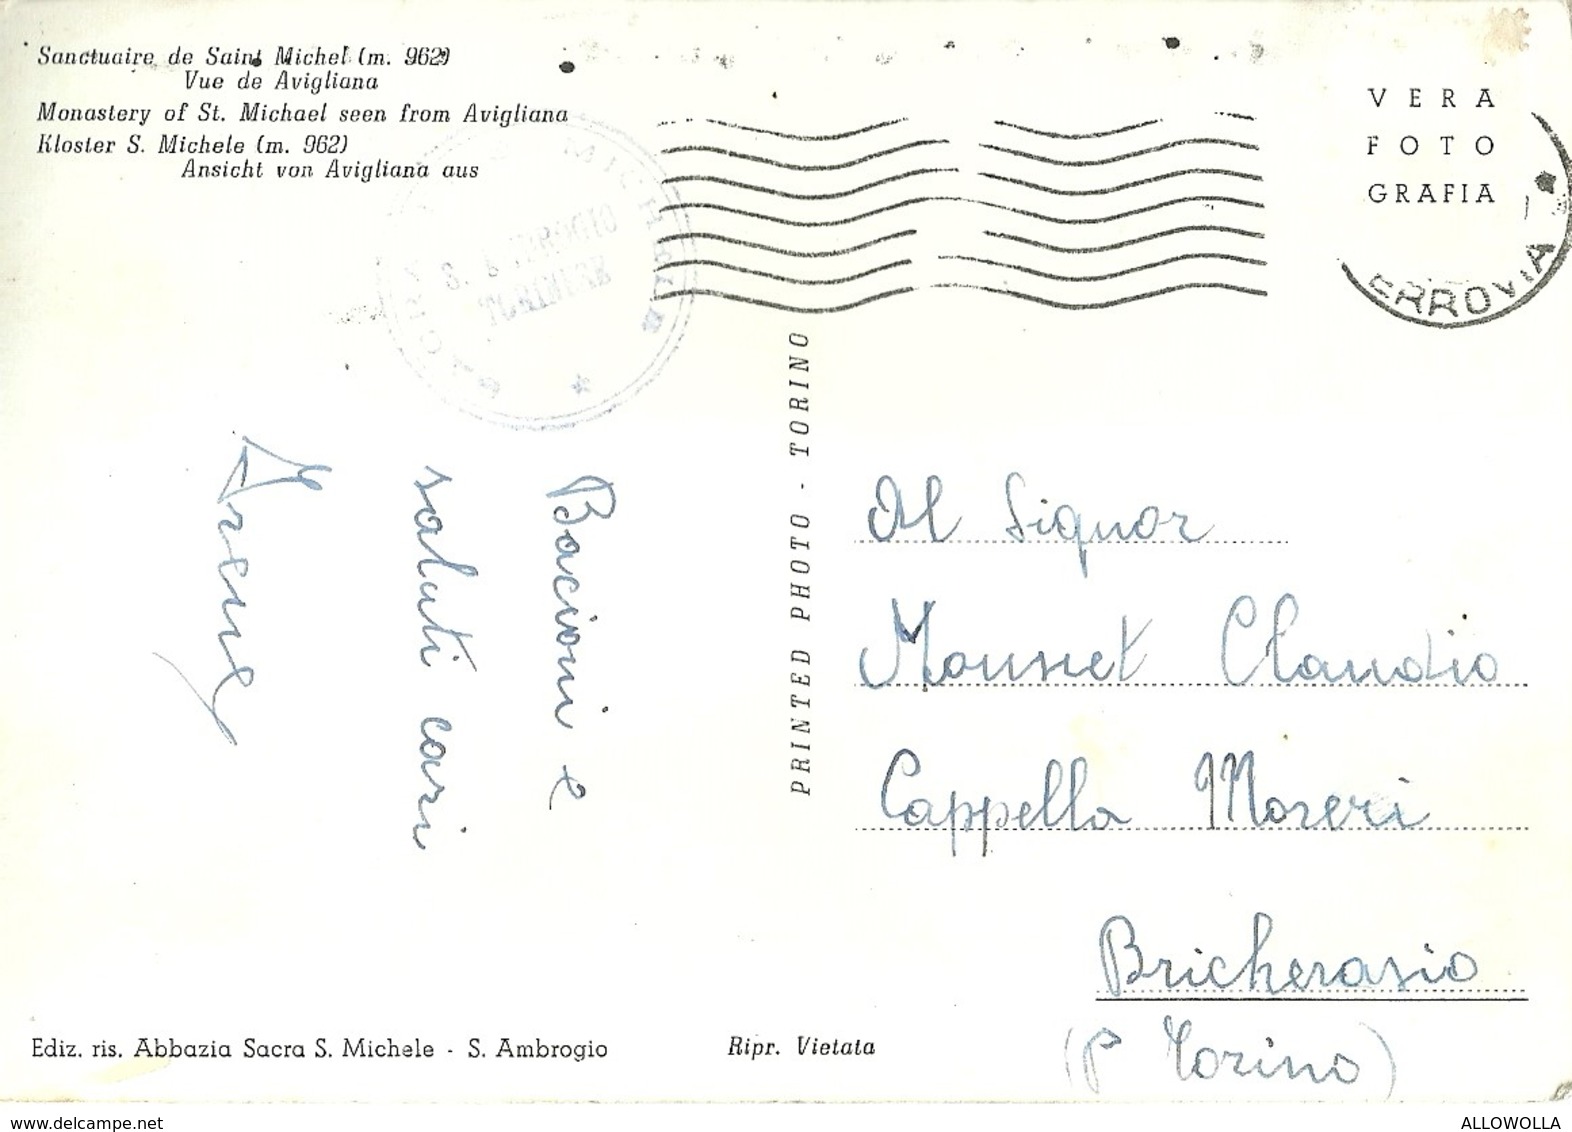 Sanctuaire de Saint Michel (m. 962)
Vue de Avigliana
Monastery of St. Michael seen from Avigliana
Kloster S. Michele (m. 962)
Ansicht von Avigliana aus
VERA
FOTO
GRAFIA
ERROVIA
S. MICHELE
S. AMBROGIO
TORINESE
Bacioni e
saluti cari
PRINTED PHOTO - TORINO
Al Signor
Claudio
Cappella Moreri
Bricherasio
(P Torino)
Ediz. ris. Abbazia Sacra S. Michele - S. Ambrogio
Ripr. Vietata
ALLOWOLLA